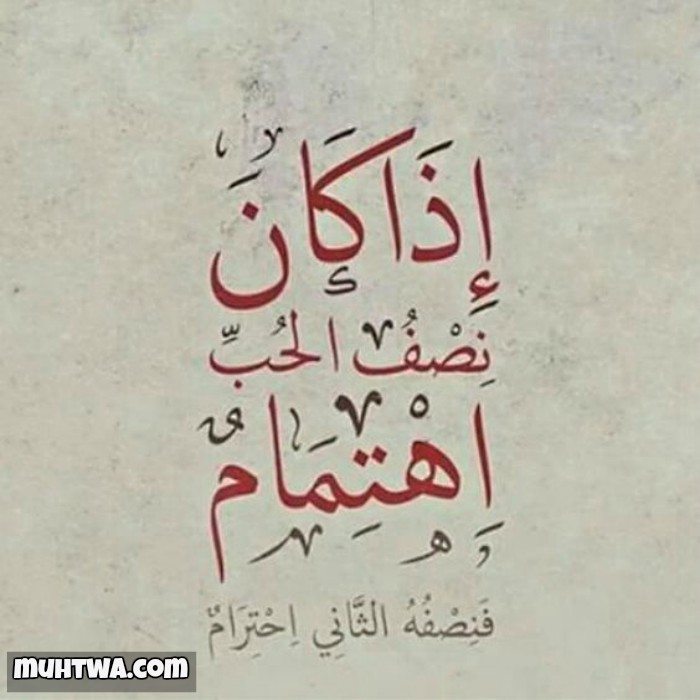 إِذَا كَانَ
نِصْفُ الحُبِّ
اِهْتِمَامٌ
فَنِصْفُهُ الثَّانِي اِحْتِرَامٌ
MUHTWA.COM